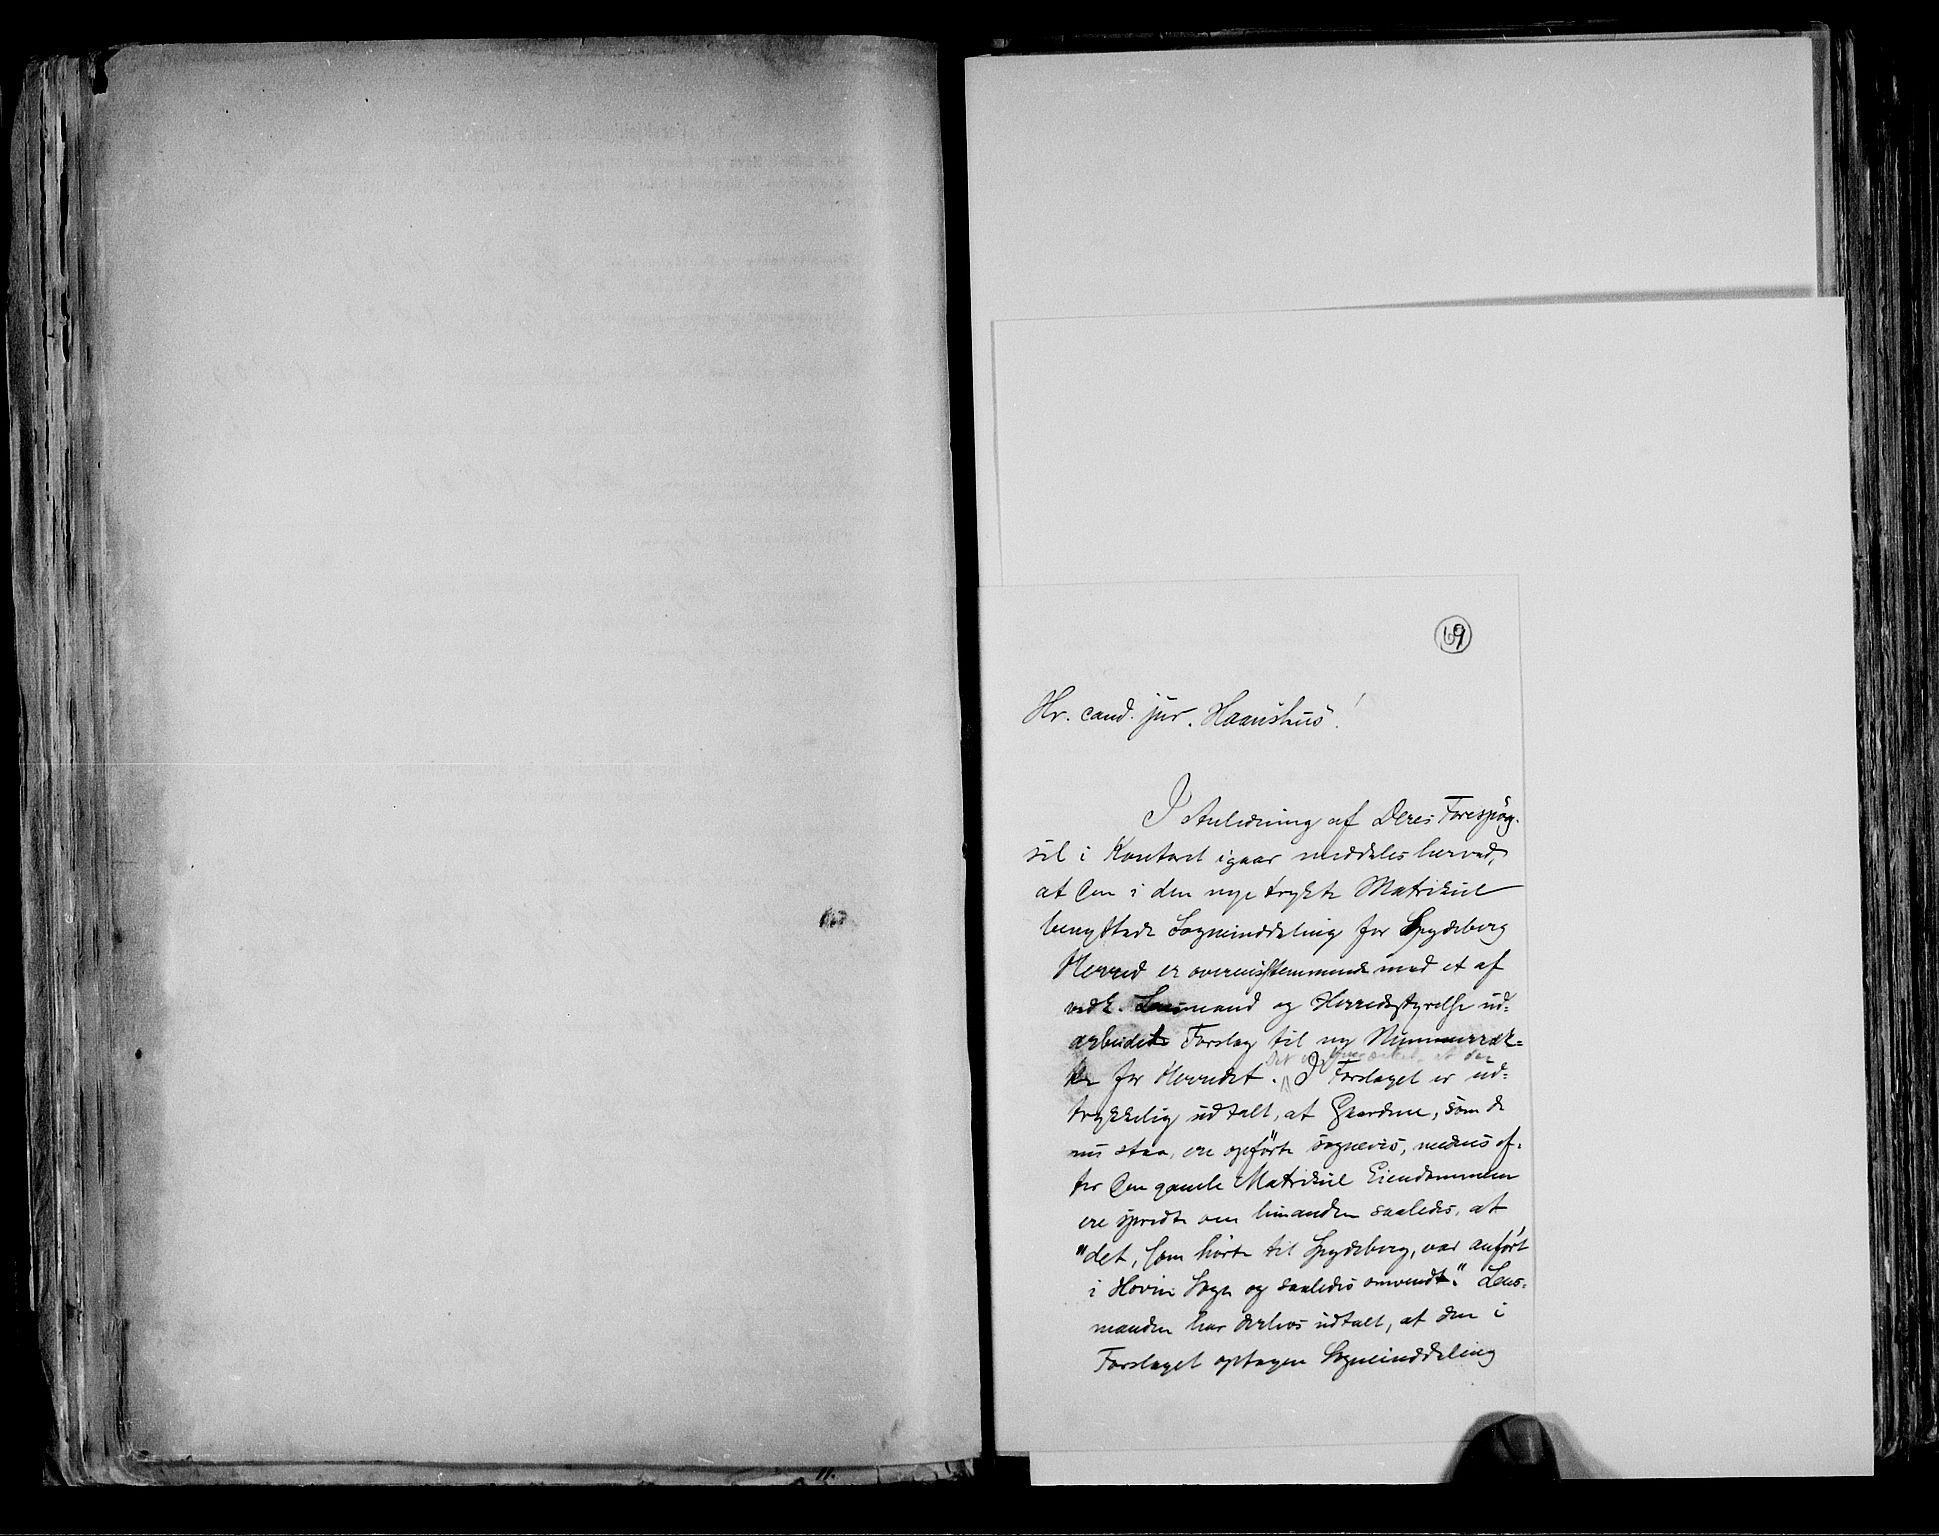 69
Hr. cand. jur. Haanshus!
I Anledning af Deres Forespög-
sel i Kontoret igaar meddeles herved,
at den i den nye trykte Matrikul
benyttede Sogneinddeling for Spydeberg
Herred er overensstemmende med et af
vedk. Lensmand og Herredsstyrelse ud-
arbeidet Forslag til ny Nummerræk-
ke for Herredet. I Forslaget er ud-
Det er at der
trykkelig udtalt, at Gaardene, som de
nu staa, ere opförte sognevis, medens ef-
ter den gamle Matrikul Eiendommene
ere spredte om hinanden saaledes, at
"det, som hörte til Spydeberg, var anfört
i Hovin Sogn og saaledes omvendt." Lens-
manden har derhos udtalt, at den i
Forslaget optagen Sogneinddeling